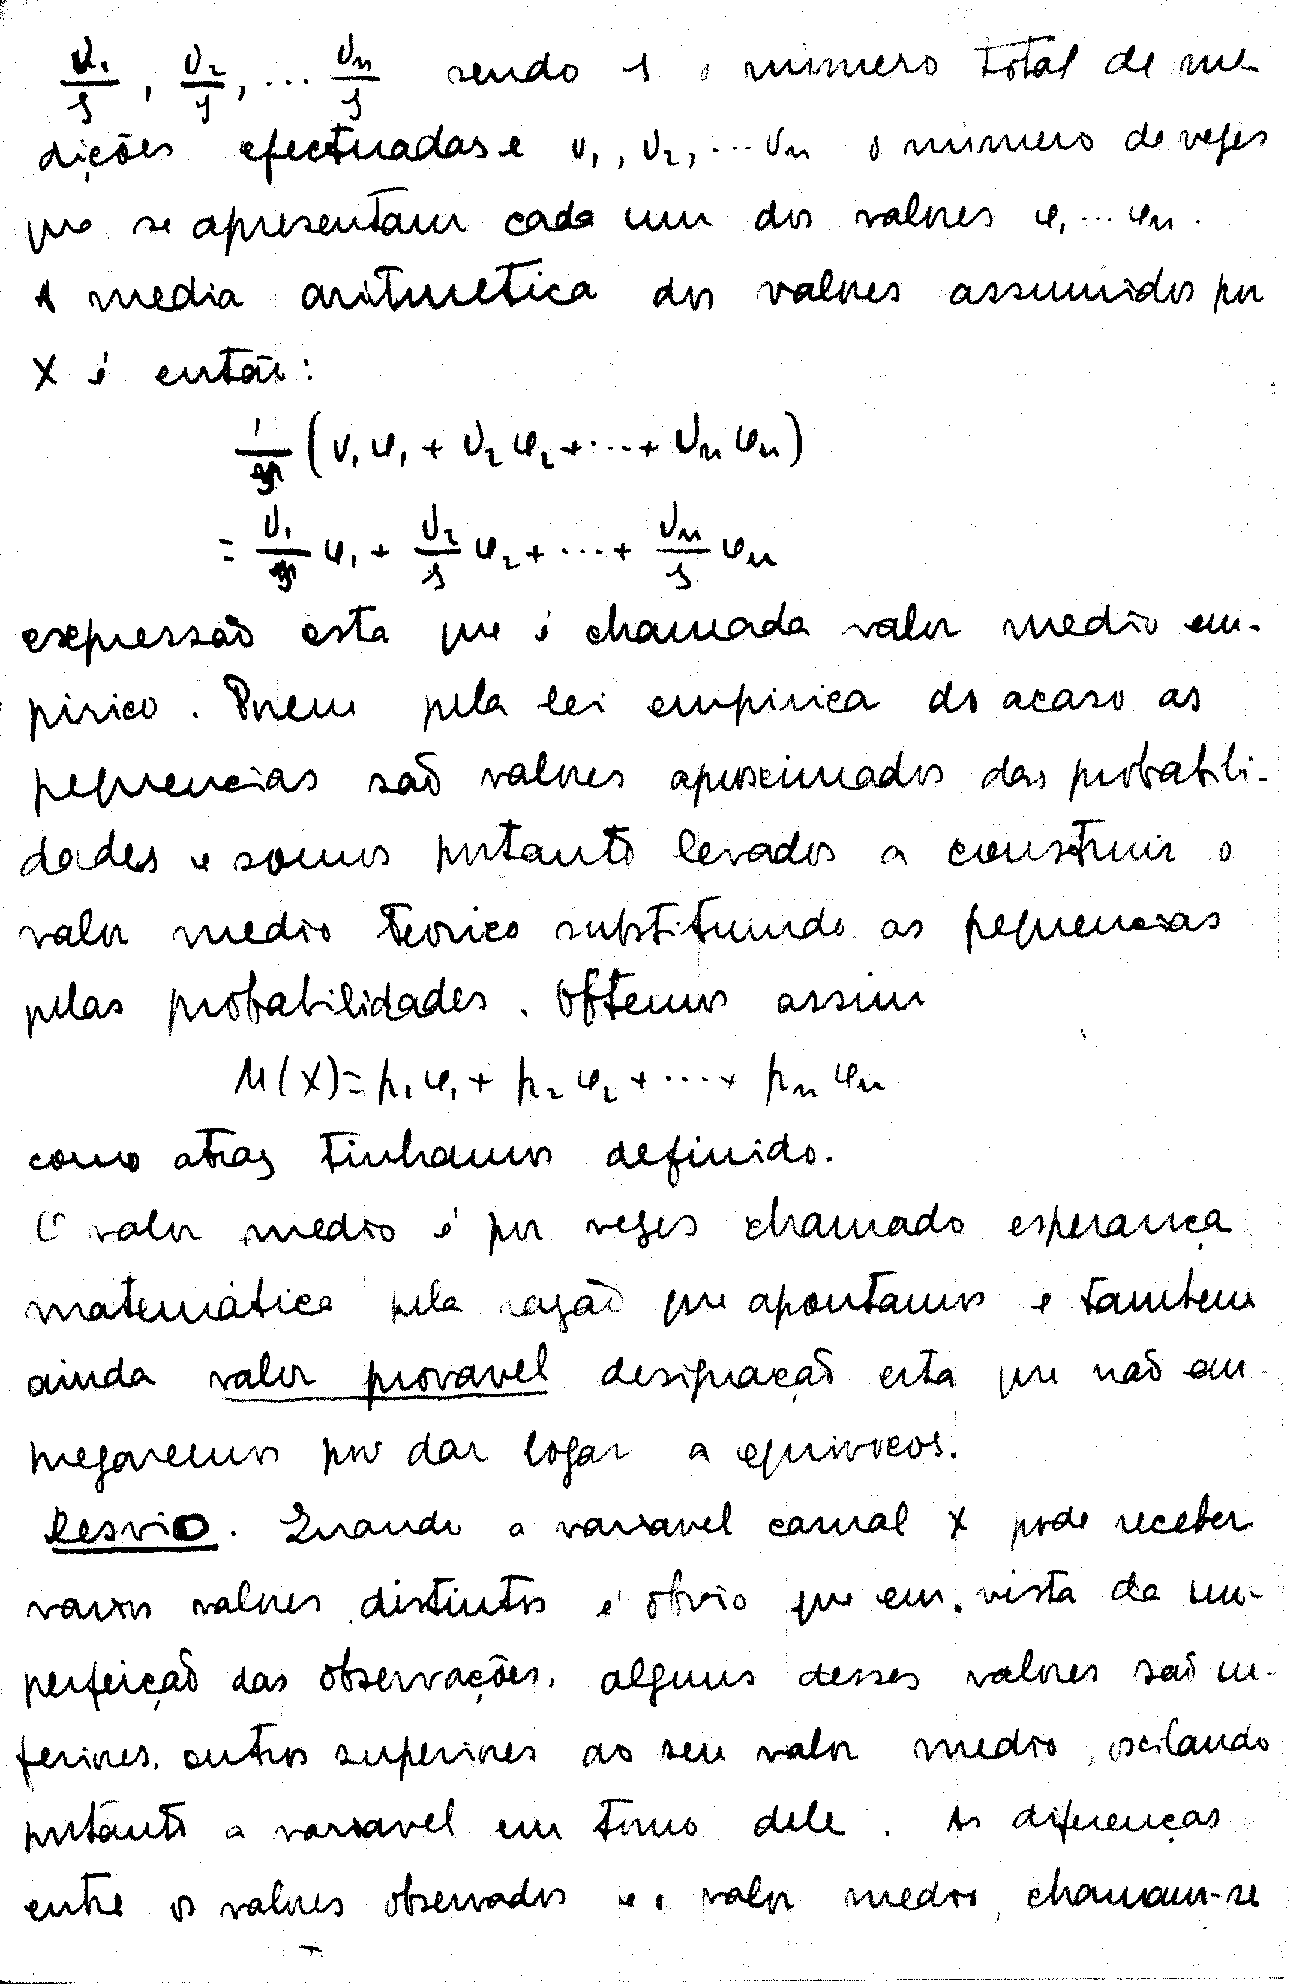 υ₁/s, υ₂/s, ... υₙ/s sendo s o numero total de me
dições efectuadas e υ₁, υ₂, ... υₙ o numero de vezes
que se apresentam cada um dos valores φ₁ ... φₙ.
A media aritmetica dos valores assumidos por
X é então:
1/s (υ₁φ₁ + υ₂φ₂ + ... + υₙφₙ)
= υ₁/s φ₁ + υ₂/s φ₂ + ... + υₙ/s φₙ
expressão esta que é chamada valor medio em-
pirico. Porem pela lei empirica do acaso as
frequencias são valores aproximados das probabili-
dades e somos portanto levados a construir o
valor medio teorico substituindo as frequencias
pelas probabilidades. Obtemos assim
M(X) = p₁φ₁ + p₂φ₂ + ... + pₙφₙ
como atraz tinhamos definido.
O valor medio é por vezes chamado esperança
matemática pela razão que apontamos e tambem
ainda valor provavel designação esta que não em
pregaremos por dar logar a equivocos.
Desvio. Quando a variavel casual X pode receber
varios valores distintos é obvio que em vista da im-
perfeição das observações, alguns desses valores são in-
feriores, outros superiores ao seu valor medio, oscilando
portanto a variavel em torno dele. As diferenças
entre os valores observados e o valor medio, chamam-se